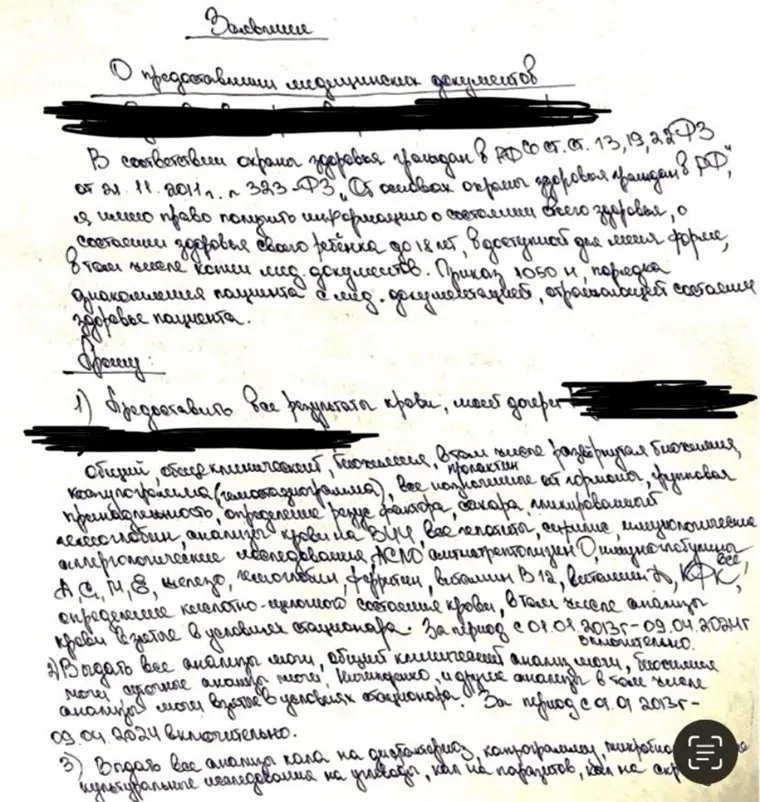 Заявление
О предоставлении медицинских документов
В соответствии охраны здоровья граждан в РФ со ст.ст. 13,19,22 ФЗ
от 21.11.2011г. n 323-ФЗ „Об основах охраны здоровья граждан в РФ",
я имею право получить информацию о состоянии своего здоровья, о
состоянии здоровья своего ребёнка до 18 лет, в доступной для меня форме,
в том числе копии мед. документов. Приказ 1050 н, порядка
ознакомления пациента с мед. документацией, отражающей состояние
здоровье пациента.
Прошу:
1) Предоставить все результаты крови, моей дочери
общий, общеклинический, биохимия, в том числе развёрнутая биохимия,
пролактин
коагулограмма (гемостазиограмма), все гормоны, групповая
принадлежность, определение резус фактора, сахара, гликированный
гемоглобин, анализы крови на ВИЧ, все гепатиты, сифилис, иммунологические
аллергологические исследования, АСЛО антистрептолизин О, иммуноглобулины
все
A, G, M, E, железо, гемоглобин, ферритин, витамин B12, витамин Д, КФК,
определение кислотно-щелочного состояния крови, в том числе анализы
крови взятые в условиях стационара. За период с 01.01 2013г-09.04.2024г
включительно.
2) Выдать все анализы мочи, общий клинический анализ мочи, биохимия
мочи суточные анализы мочи, Нечипоренко, и другие анализы в том числе
анализы мочи взятые в условиях стационара. За период с 01.01 2013г-
09.04.2024 включительно.
3) Выдать все анализы кала на дисбактериоз, копрограммы,
культуральные исследования на углеводы, кал на паразитов, кал на